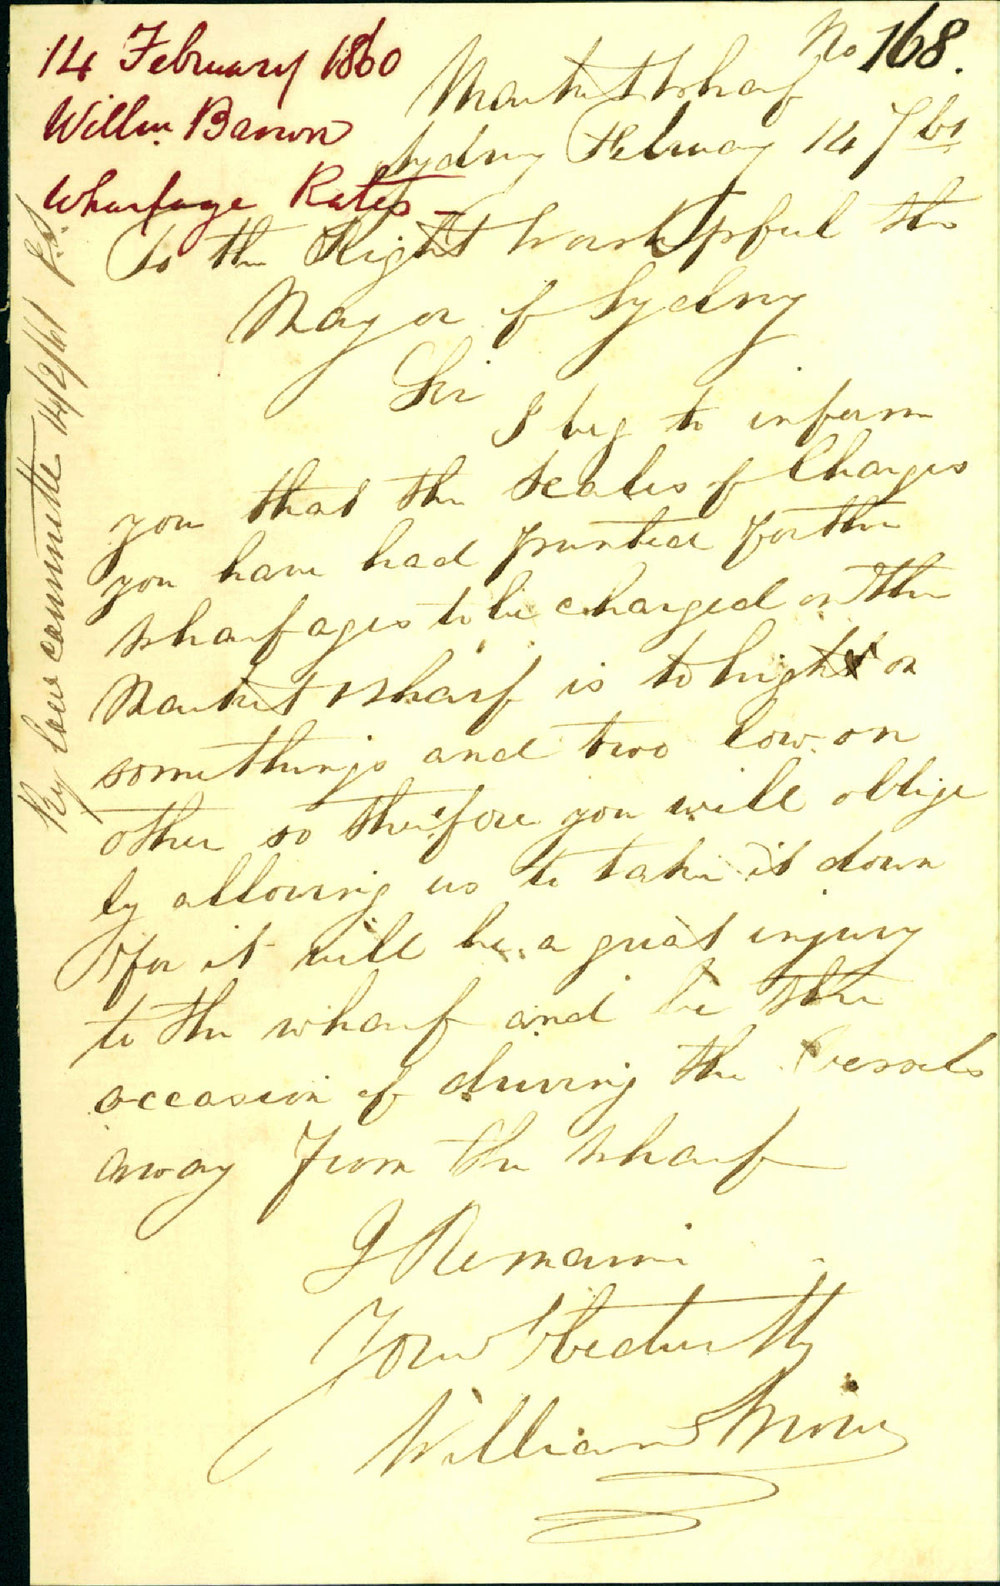 No 168.
14 February 1860
Willm Barron
Wharfage Rates
Market Wharf
Sydney February 14
To the Right Worshipful the
Mayor of Sydney
Sir
I beg to inform
you that the Scales of Charges
you have had printed for the
wharfages to be charged on the
Market Wharf is to hight on
somethings and two low on
other so therefore you will oblige
by allowing us to take it down
for it will be a great injury
to the wharf and be the
occasion of driving the vessels
away From the wharf
I Remain
Your Obedently
William
By Law committe 14/2/61